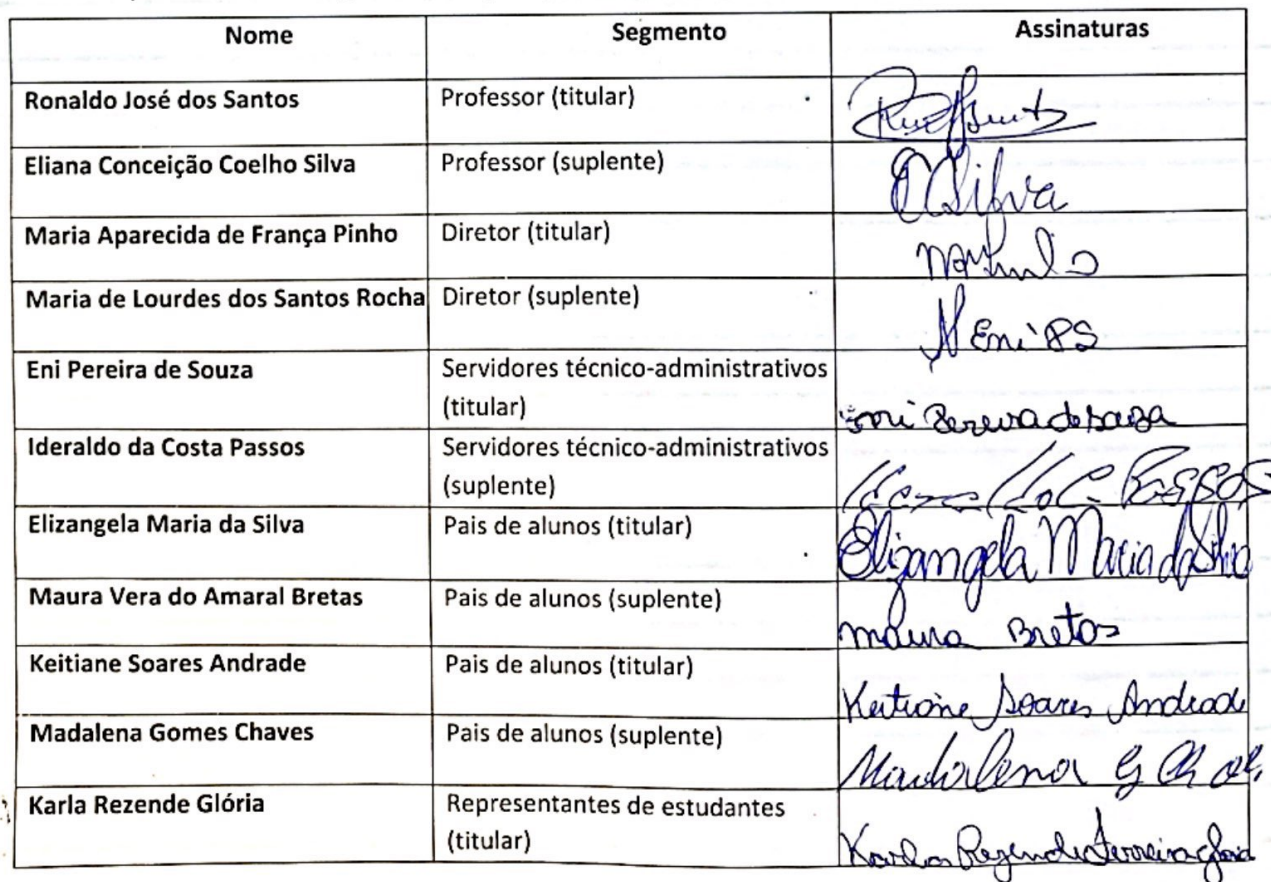 Nome Segmento Assinaturas
Ronaldo José dos Santos Professor (titular)
Eliana Conceição Coelho Silva Professor (suplente) Silva
Maria Aparecida de França Pinho Diretor (titular)
Maria de Lourdes dos Santos Rocha Diretor (suplente) Eni PS
Eni Pereira de Souza Servidores técnico-administrativos
(titular) Eni Pereira de Souza
Ideraldo da Costa Passos Servidores técnico-administrativos
(suplente) Passos
Elizangela Maria da Silva Pais de alunos (titular) Elizangela Maria da Silva
Maura Vera do Amaral Bretas Pais de alunos (suplente) Maura Bretas
Keitiane Soares Andrade Pais de alunos (titular) Keitiane Soares Andrade
Madalena Gomes Chaves Pais de alunos (suplente) Madalena G
Karla Rezende Glória Representantes de estudantes
(titular) Karla Rezende Ferreira Glória